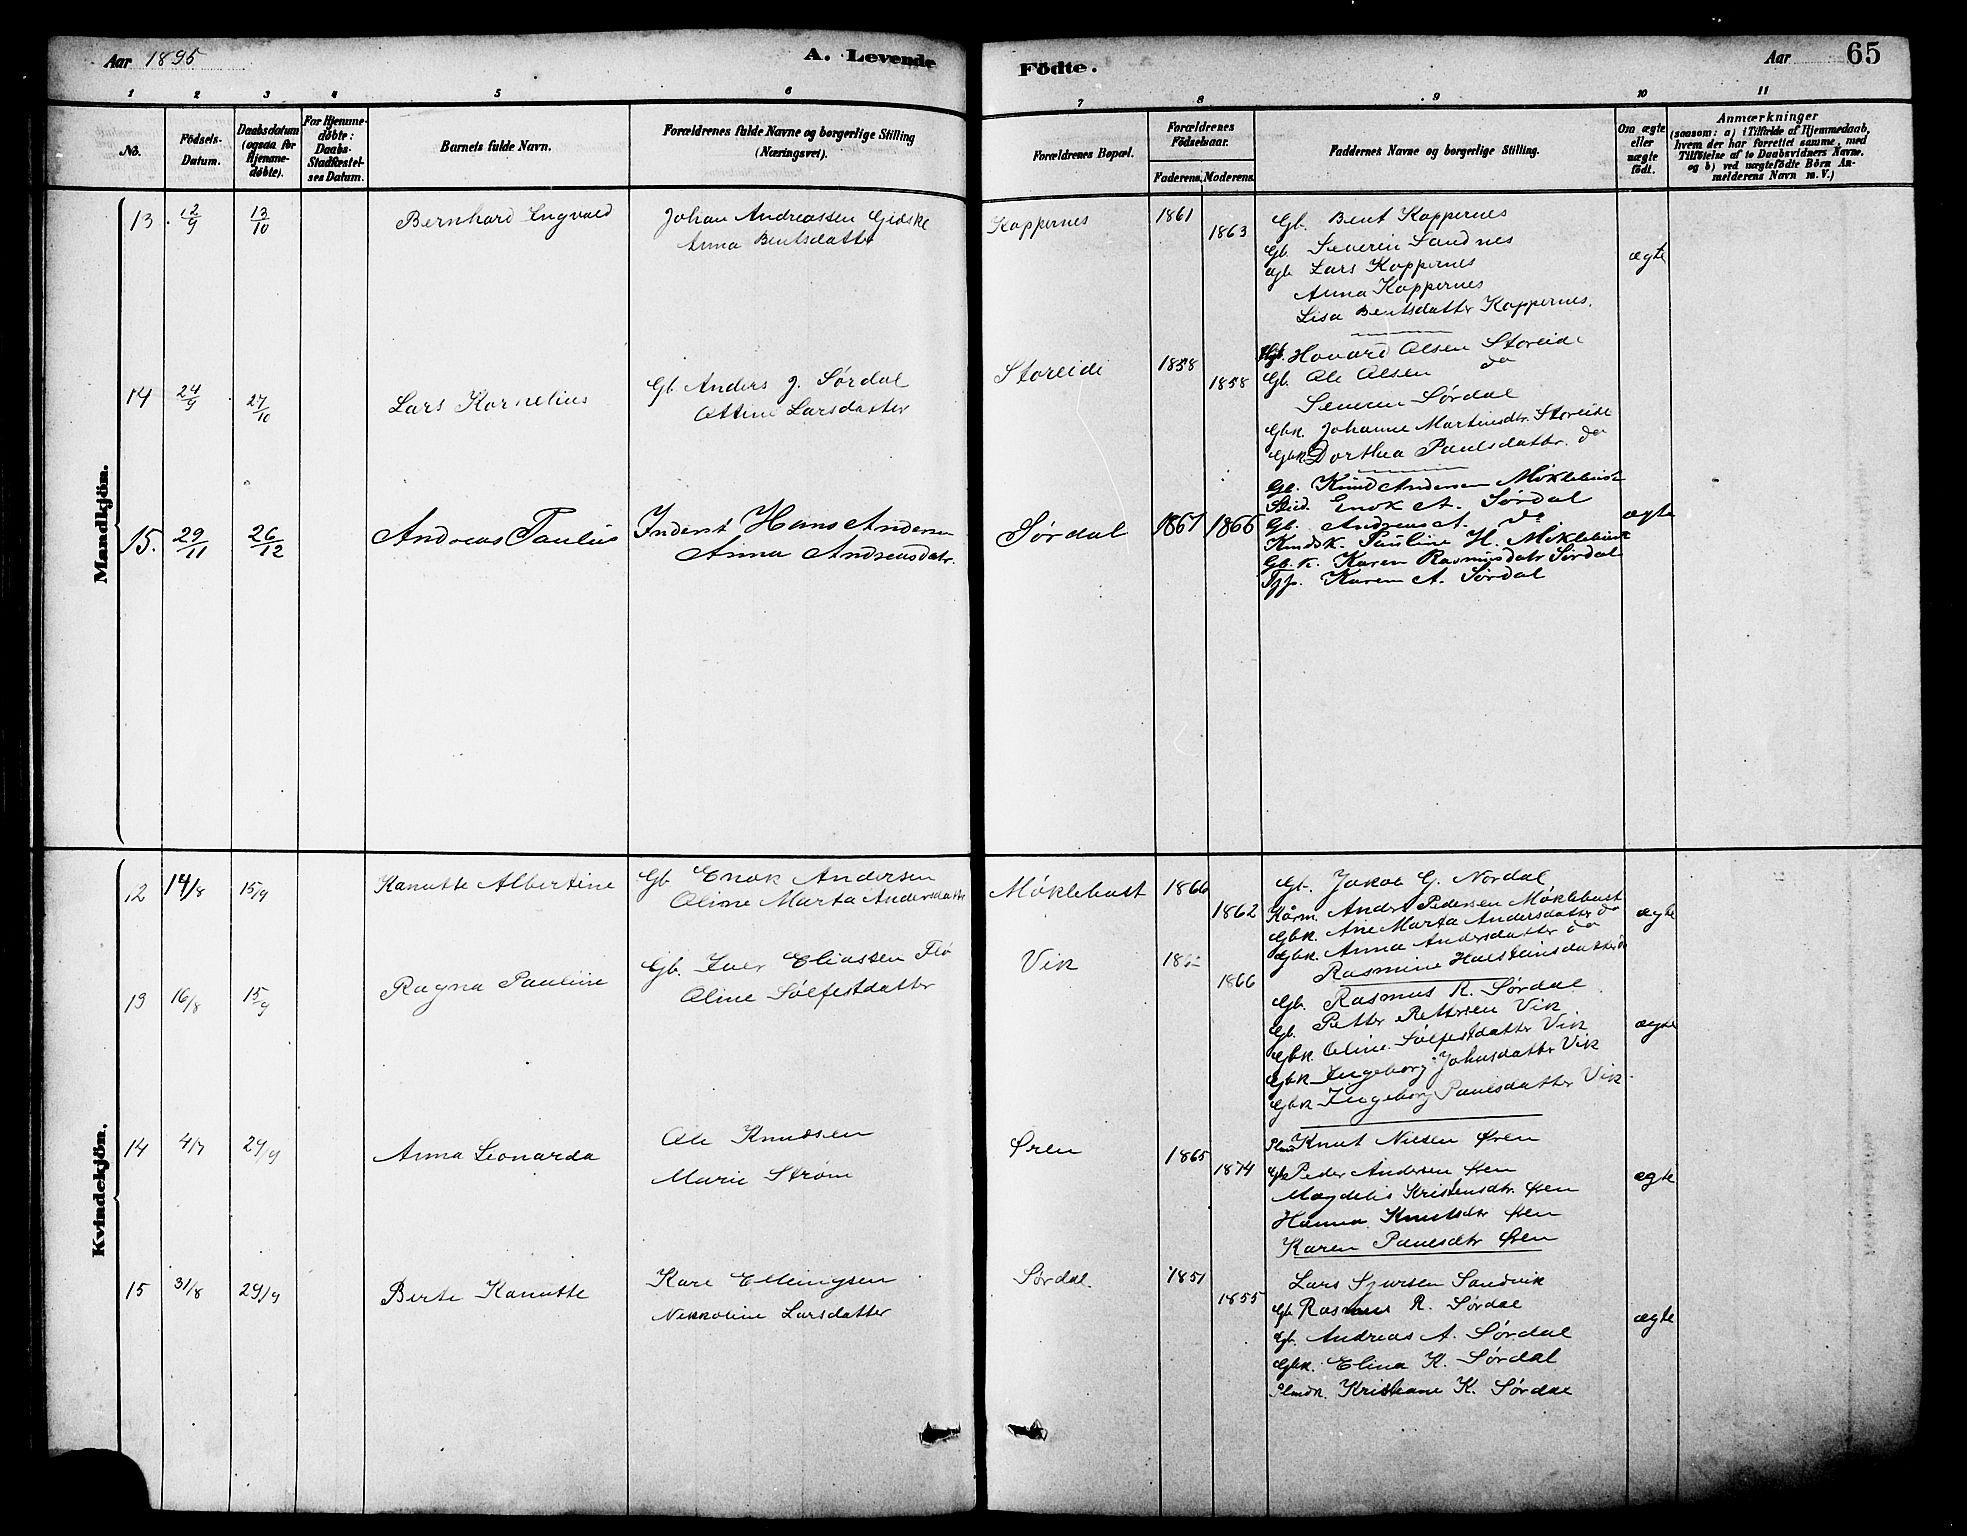 Aar 1895
A. Levende
Födte.
Aar
65
1 2 3 4 5 6 7 8 9 10 11
No.
Födsels-
Datum.
Daabsdatum
(ogsaa for
Hjemme-
døbte).
For Hjemme-
døbte:
Daabs-
Stadfæstel-
ses Datum.
Barnets fulde Navn.
Forældrenes fulde Navne og borgerlige Stilling
(Næringsvei).
Forældrenes Bopæl.
Forældrenes
Födselsaar.
Faderens.
Moderens.
Faddernes Navne og borgerlige Stilling.
Om ægte
eller
uægte
født.
Anmærkninger
(saasom: a) i Tilfælde af Hjemmedaab,
hvem der har forrettet samme, med
Tilföielse af to Daabsvidners Navne.
og b) ved uægtefödte Börn An-
melderens Navn m. V.)
Mandkjön.
13 12/9 13/10 Bernhard Ingvald
Johan Andreassen Gidske
Anna Bentsdatter
Koppernes 1861 1863
Gb. Bent Koppernes
Gb. Severin Sandnes
Gb. Lars Koppernes
Anna Koppernes
Lisa Bentsdatter Koppernes.
ægte
14 24/9 27/10 Lars Kornelius
Gb. Anders J. Sørdal
Ottine Larsdatter
Storeide 1858 1858
Hovard Olsen Storeide
Gb. Ole Olsen do
Severin Sørdal
Gbk. Johanne Martinsdtr. Storeide
Gbk. Dorthea Paulsdatter. do
15. 29/11 26/12 Andreas Paulus
Inderst Hans Andersen
Anna Andreasdatr.
Sørdal 1867 1866
Gb. Knud Andersen Møklebust
Enok A. Sørdal
Gb. Andreas A. do
Pauline H. Møklebust
Gb. k. Karen Rasmusdatr Sørdal
Karen A. Sørdal
ægte
Kvindekjön.
12 14/8 15/9 Kanutte Albertine
Gb Enok Andersen
Oline Marta Andersdatter
Møklebust 1866 1862
Gb. Jakob G. Nordal
Kårm. Anders Pedersen Møklebust
Gbk. Ane Marta Andersdatter do
Gbk. Anna Andersdatter do
Rasmine Halstensdatter do
ægte
13 16/8 15/9 Ragna Pauline
Gb. Iver Eliassen Flø
Oline Sølfestdatter
Vik 1866
Gb. Rasmus R. Sørdal
Gb. Petter Pettersen Vik
Gbk. Oline Sølfestdatter Vik
Gbk Ingeborg Johnsdatter Vik
Gbk Ingeborg Paulsdatter Vik
ægte
14 4/7 29/9 Anna Leonarda
Ole Knudsen
Marie Strøm
Øren 1865 1874
Knut Nilsen Øren
Peder Andersen Øren
Magdelis Kristensdtr. Øren
Hanna Knutsdtr Øren
Karen Paulsdtr Øren
ægte
15 31/8 29/9 Berte Kanutte
Kare Ellingsen
Nikkoline Larsdatter
Sørdal 1851 1855
Lars Sjursen Sandvik
Gb Rasmus R. Sørdal
Gb. Andreas A. Sørdal
Gbk. Elina K. Sørdal
Kristiane K. Sørdal
ægte